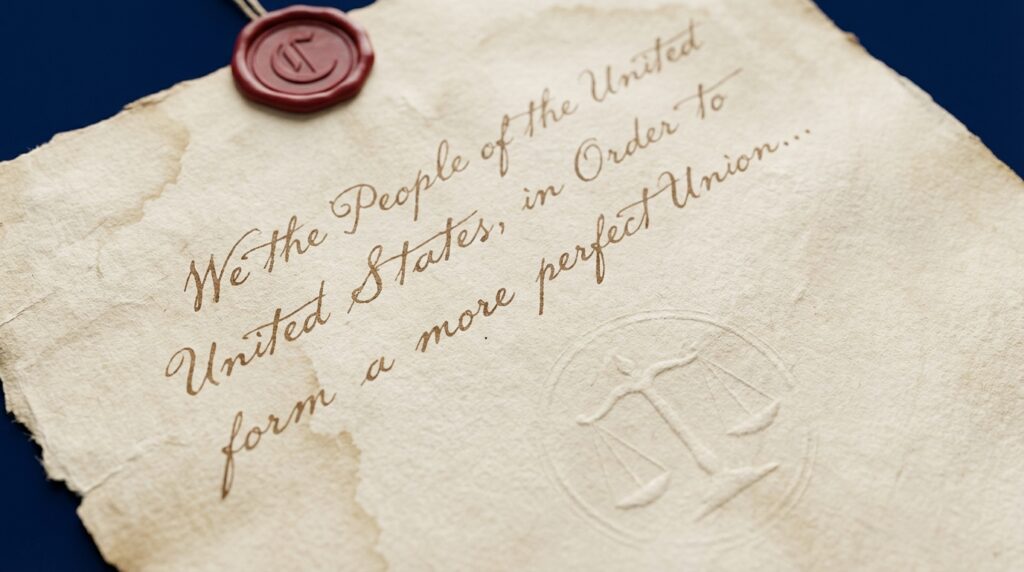 We the People of the United
United States, in Order to
form a more perfect Union...